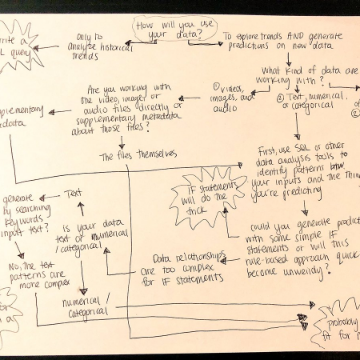 How will you use
your data?
write a
L query
only to
analyze historical
trends
To explore trends AND generate
predictions on new data
What kind of data are
working with?
① video,
images, and
audio
② Text, numerical,
or categorical
Are you working with
the video, image, or
audio files directly or
supplementary metadata
about those files?
pplementary
tadata
The files themselves
First, use SQL or other
data analysis tools to
identify patterns btw
your inputs and the thing
you're predicting
IF statements
will do the
trick
could you generate predict
with some simple IF
statements or will this
rule-based approach quick
become unwieldy?
Data relationships
are too complex
for IF statements
Is your data
text or numerical
/categorical
Text
generate
by searching
keywords
input text?
No, the text
patterns are
more complex
numerical /
categorical
probably
fit for